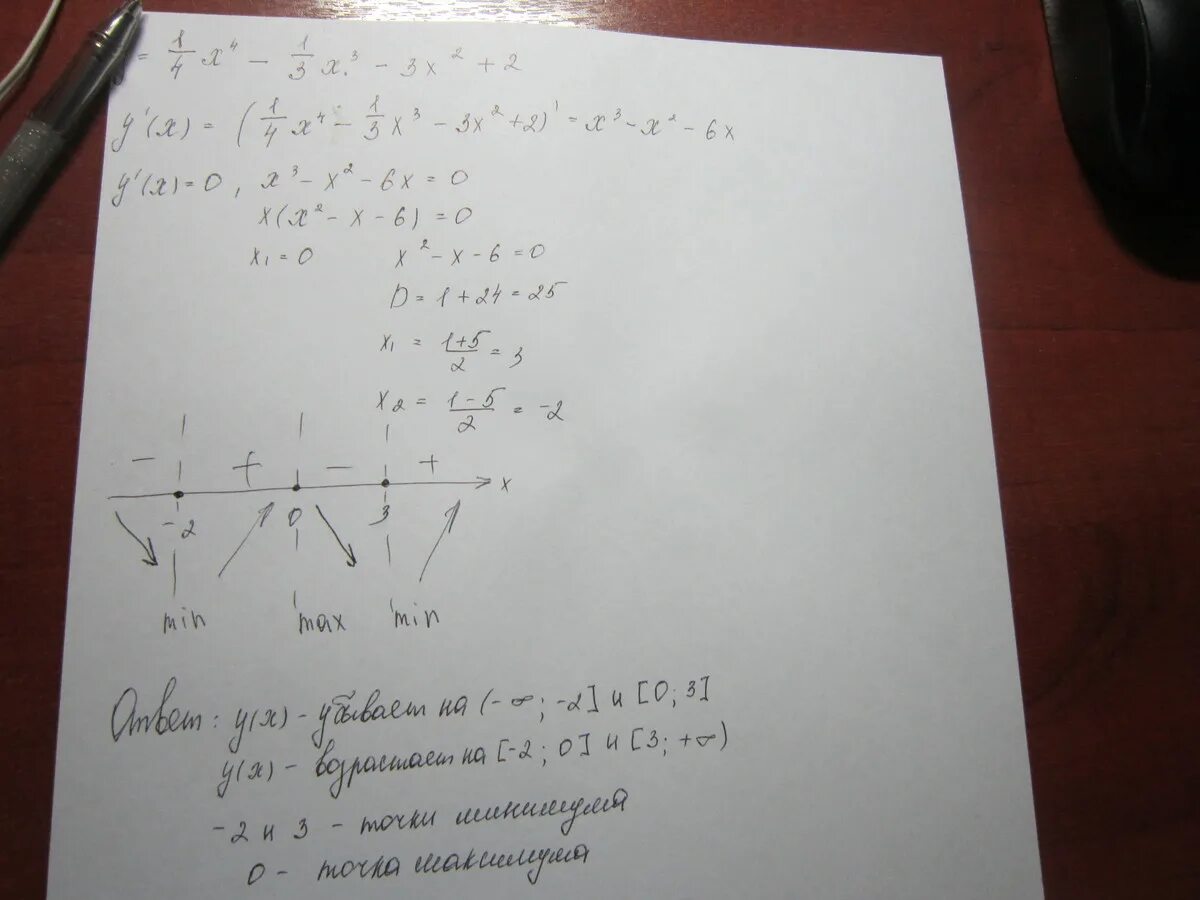 y = 1/4 x⁴ - 1/3 x³ - 3x² + 2
y'(x) = (1/4 x⁴ - 1/3 x³ - 3x² + 2)' = x³ - x² - 6x
y'(x) = 0, x³ - x² - 6x = 0
x(x² - x - 6) = 0
x₁ = 0 x² - x - 6 = 0
D = 1 + 24 = 25
x₁ = (1+5)/2 = 3
x₂ = (1-5)/2 = -2
- + - + x
-2 0 3
min max min
Ответ: y(x) - убывает на (-∞; -2] и [0; 3]
y(x) - возрастает на [-2; 0] и [3; +∞)
-2 и 3 - точки минимума
0 - точка максимума